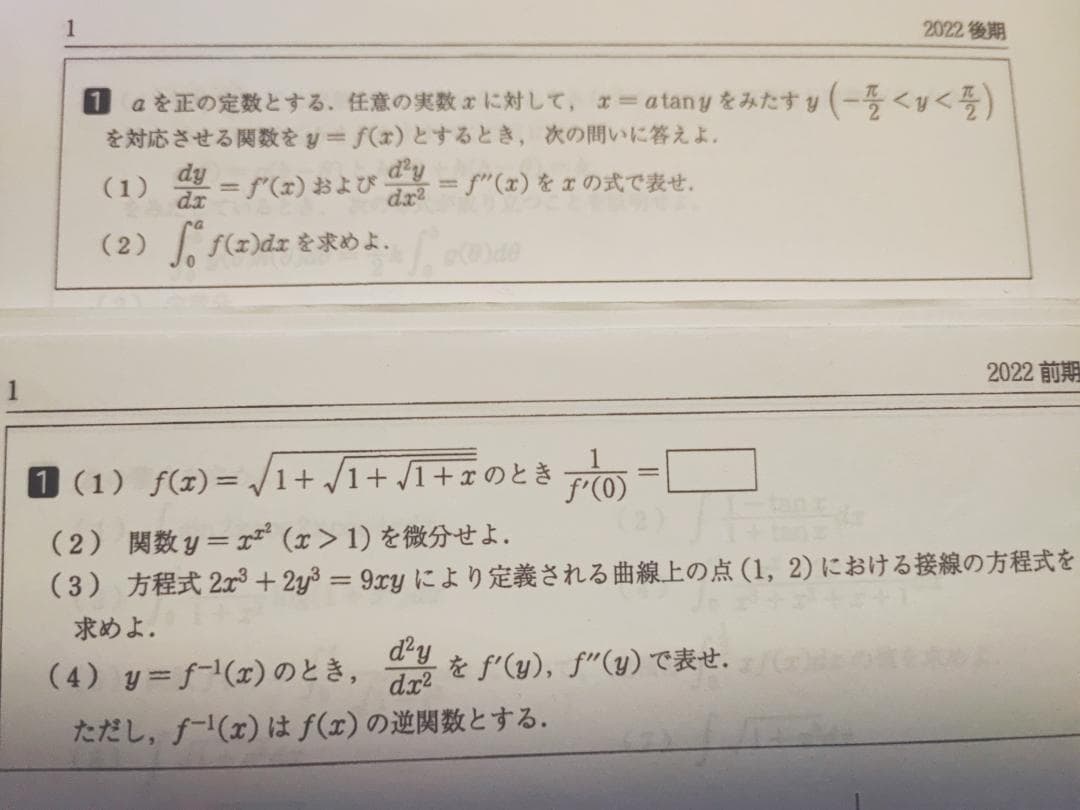 1
2022 後期
1 aを正の定数とする．任意の実数 x に対して， x = a tan y をみたす y (−π/2 < y < π/2)
を対応させる関数を y = f(x) とするとき，次の問いに答えよ．
(1) dy/dx = f′(x) および d²y/dx² = f″(x) を x の式で表せ．
(2) ∫₀ᵃ f(x)dx を求めよ．
1
2022 前期
1 (1) f(x) = √(1 + √(1 + √(1 + x))) のとき 1/f′(0) = □
(2) 関数 y = x^{x²} (x > 1) を微分せよ．
(3) 方程式 2x³ + 2y³ = 9xy により定義される曲線上の点 (1, 2) における接線の方程式を
求めよ．
(4) y = f⁻¹(x) のとき， d²y/dx² を f′(y), f″(y) で表せ．
ただし，f⁻¹(x) は f(x) の逆関数とする．